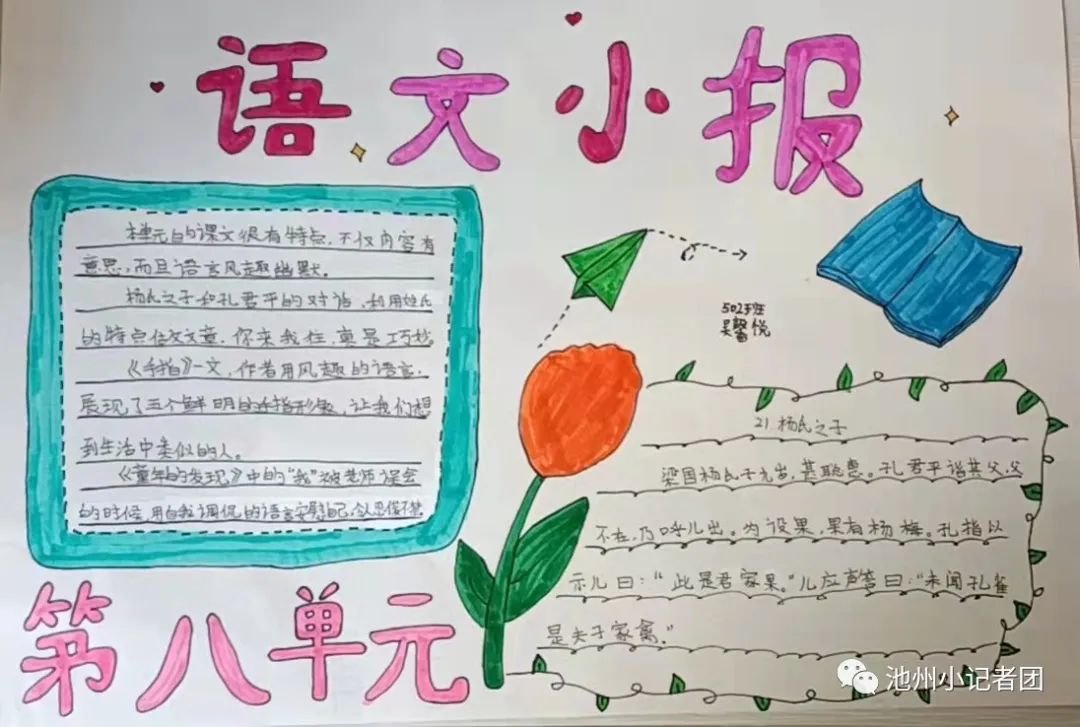 语文小报
本单元的课文很有特点,不仅内容有
意思,而且语言风趣幽默。
杨氏之子和孔君平的对话,利用姓氏
的特点做文章,你来我往,真是巧妙。
《手指》一文,作者用风趣的语言,
展现了五个鲜明的手指形象,让我们想
到生活中类似的人。
《童年的发现》中的“我”被老师误会
的时候,用自我调侃的语言安慰自己,令人忍俊不禁。
第八单元
502班
吴馨悦
21.杨氏之子
梁国杨氏子九岁,甚聪惠。孔君平诣其父,父
不在,乃呼儿出。为设果,果有杨梅。孔指以
示儿曰:“此是君家果。”儿应声答曰:“未闻孔雀
是夫子家禽。”
池州小记者团